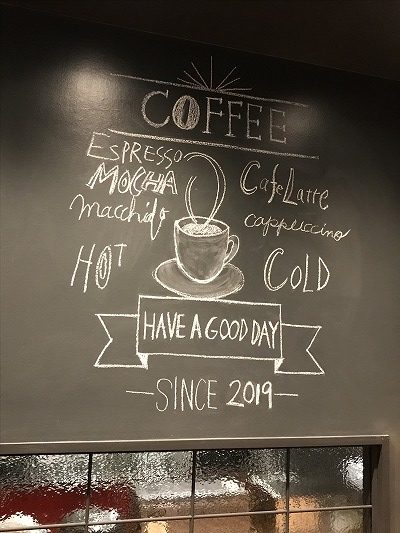 COFFEE
ESPRESSO
MOCHA
Macchiato
Cafe Latte
cappuccino
HOT
COLD
HAVE A GOOD DAY
—SINCE 2019—